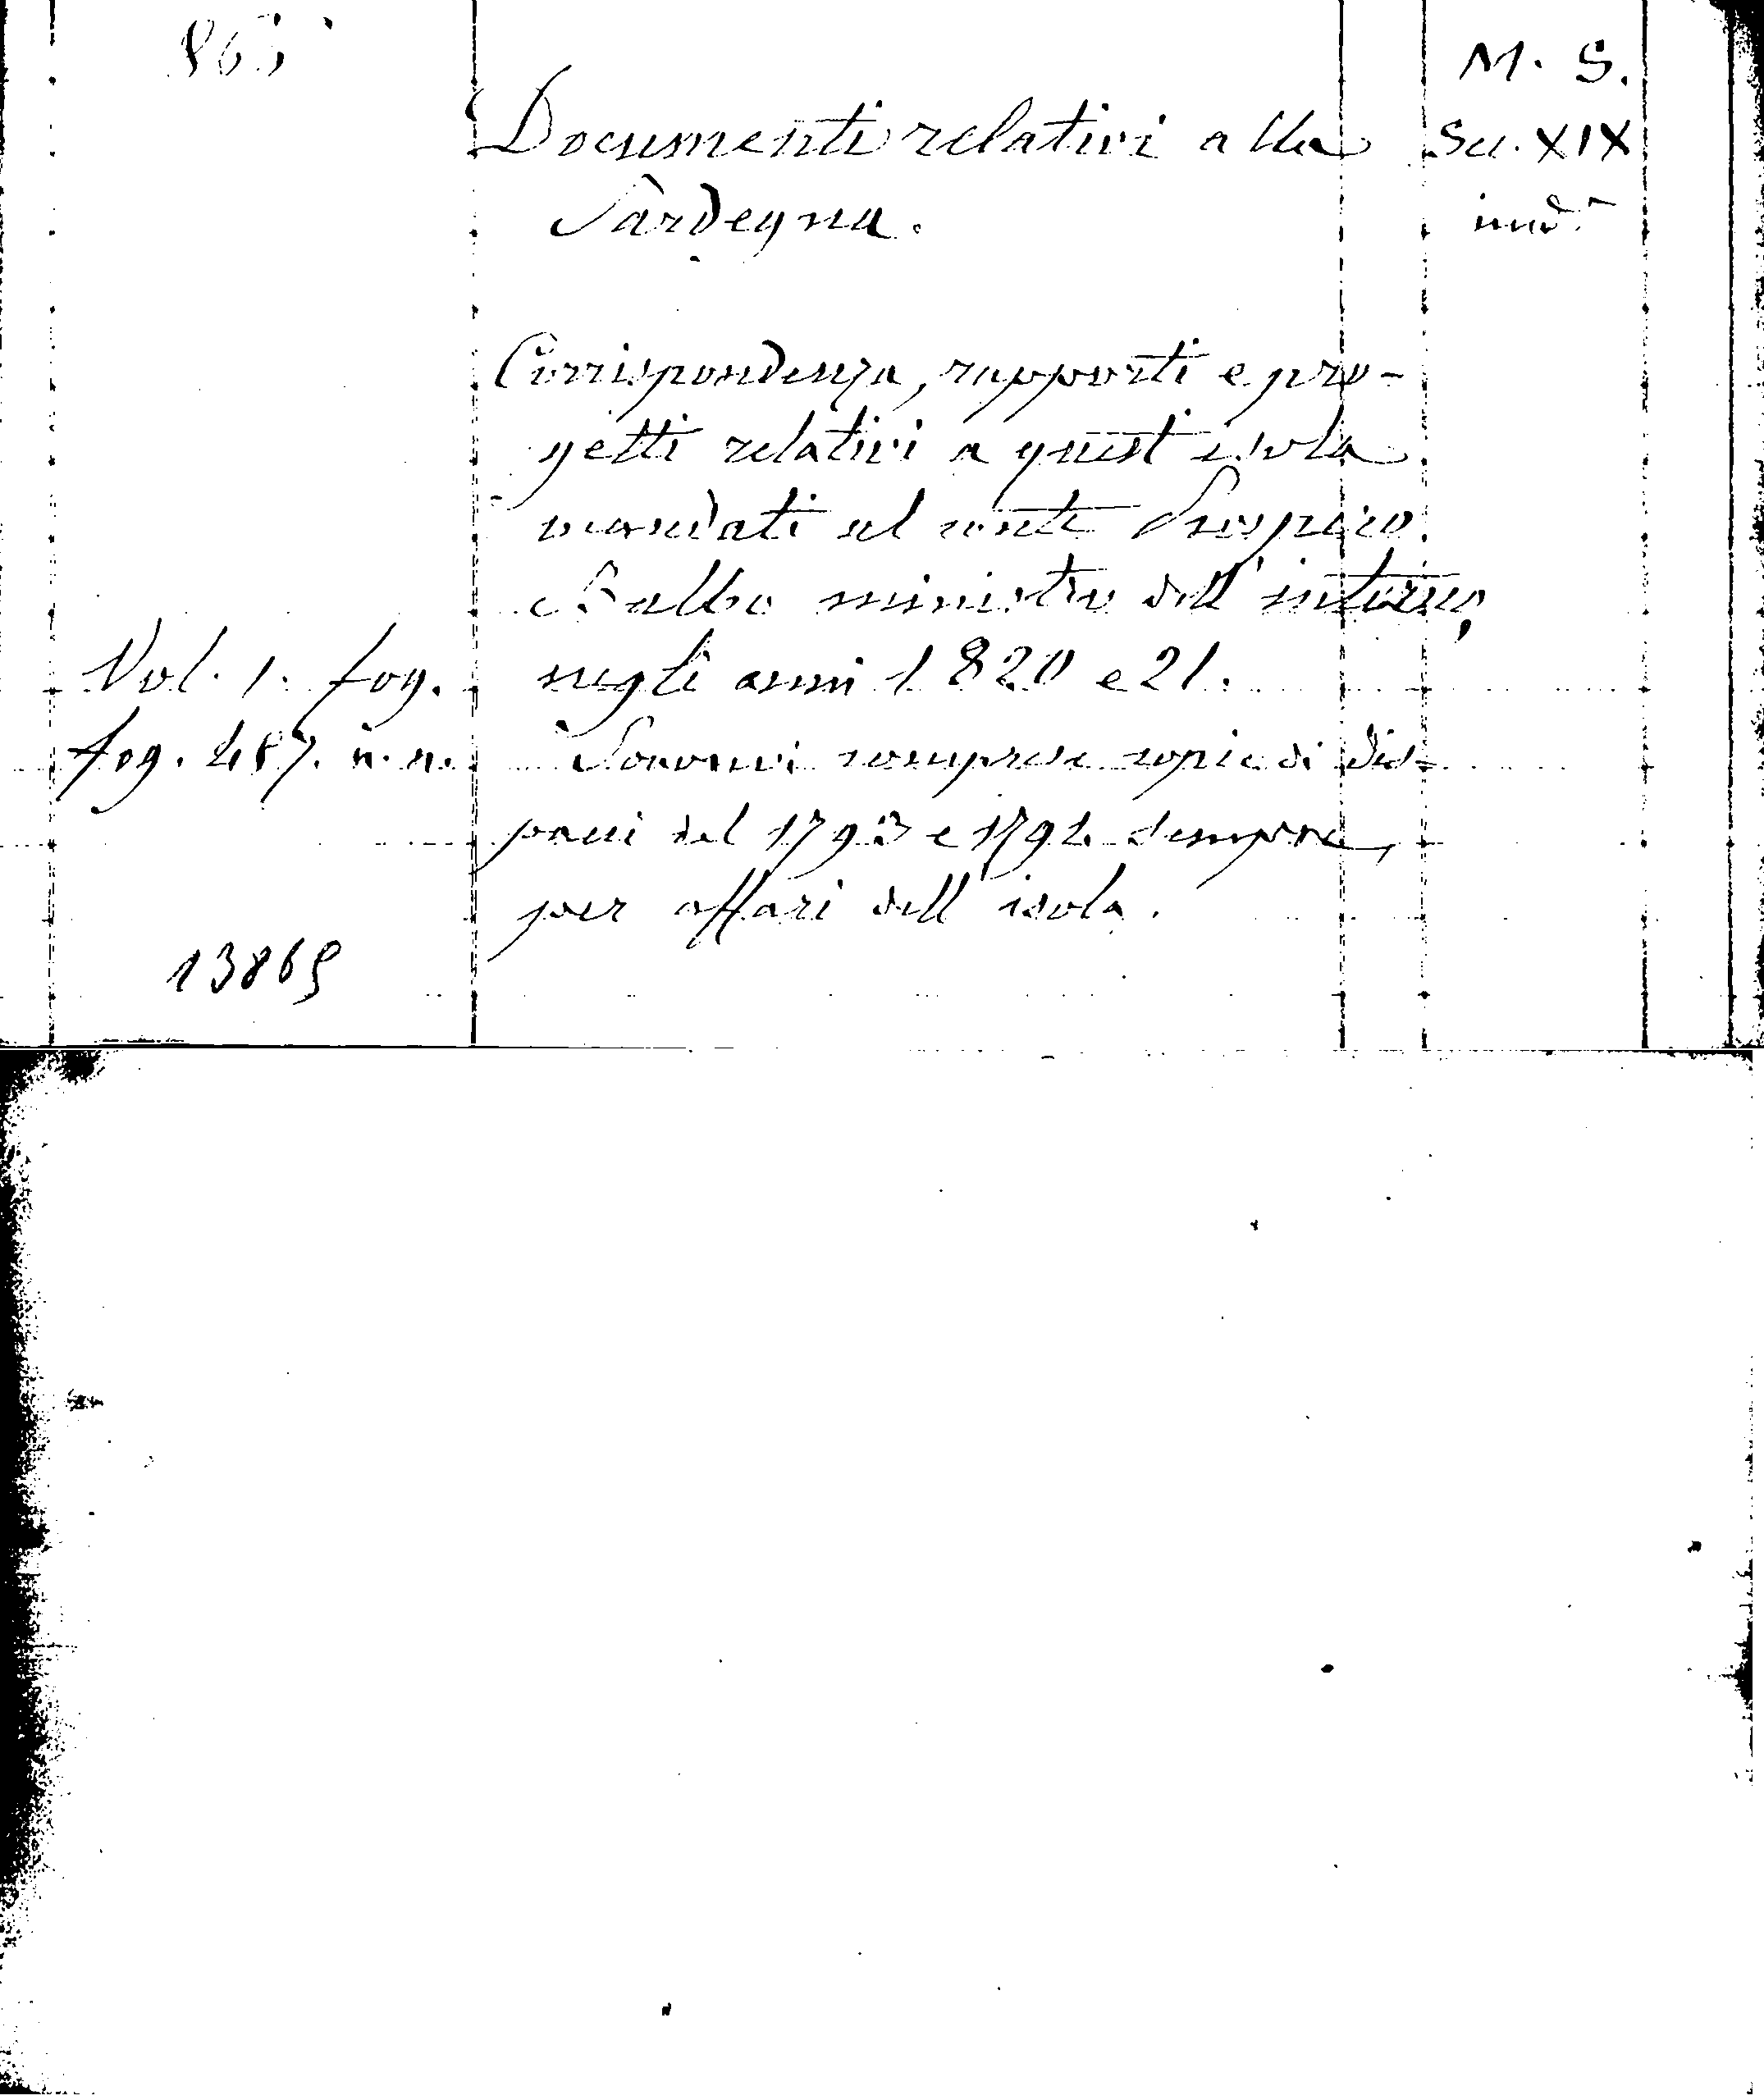 863
M. S.
Documenti relativi alla
Sec. XIX
Sardegna.
Corrispondenza, rapporti e pro-
getti relativi a quest'isola
mandati al conte Prospero
Balbo ministro dell'interno,
Vol. 1. fog.
negli anni 1820 e 21.
fog. 487. n. n.
Sononvi comprese copie di dis-
pacci del 1793 e 1792 sempre,
per affari dell'isola.
13865